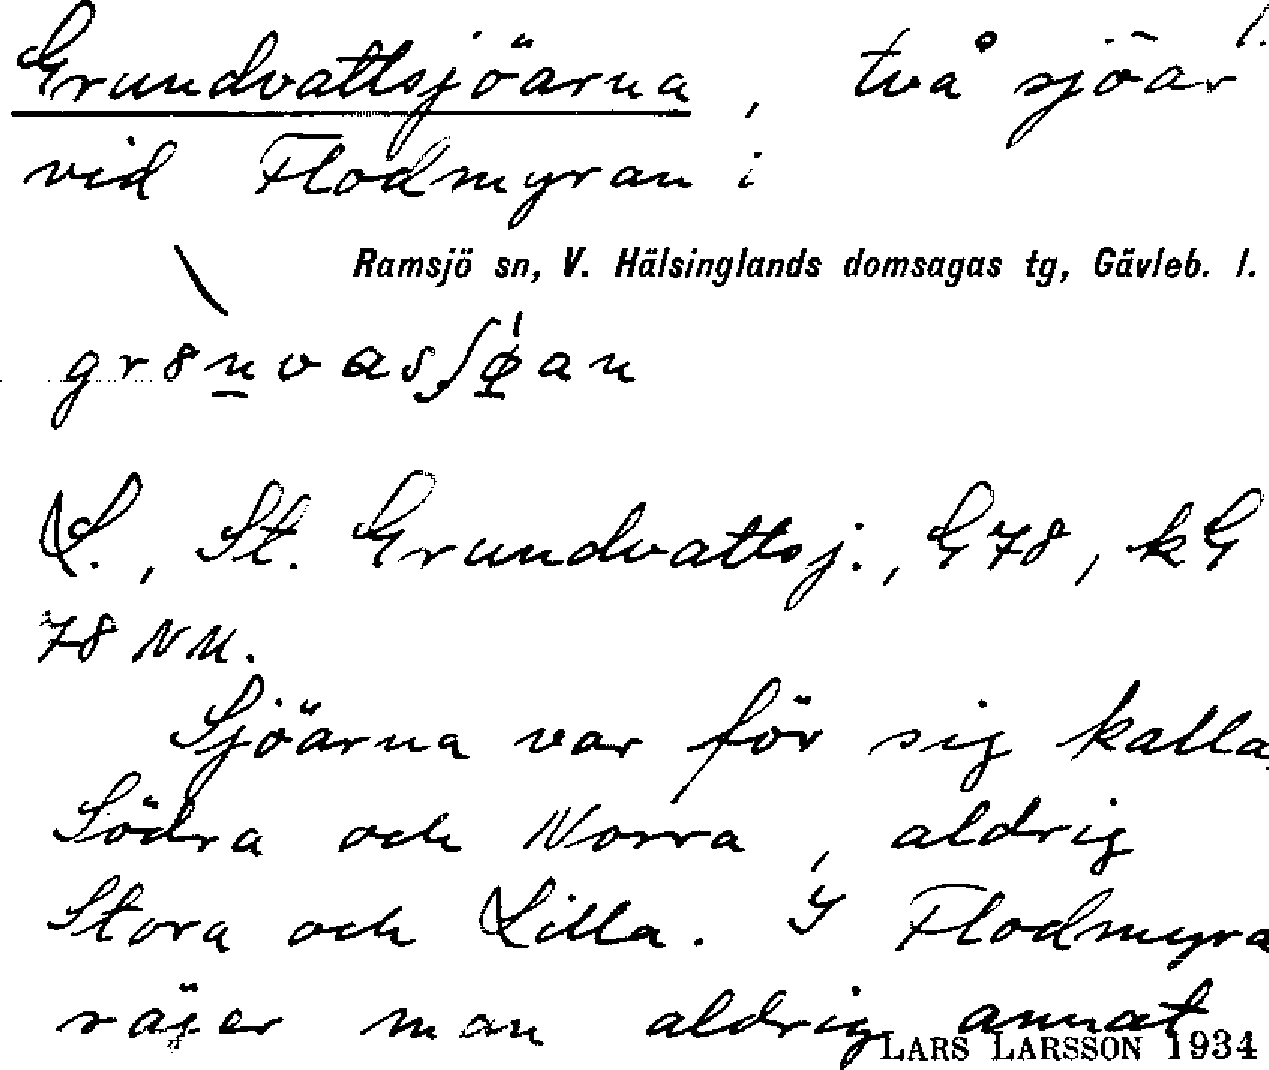 Grundvattsjöarna, två sjöar 1.
vid Flodmyran i
Ramsjö sn, V. Hälsinglands domsagas tg, Gävleb. l.
L., St. Grundvattsj., G78, kG
78 NM.
Sjöarna var för sig kalla
Södra och Norra, aldrig
Stora och Lilla. I Flodmyra
säger man aldrig annat
LARS LARSSON 1934